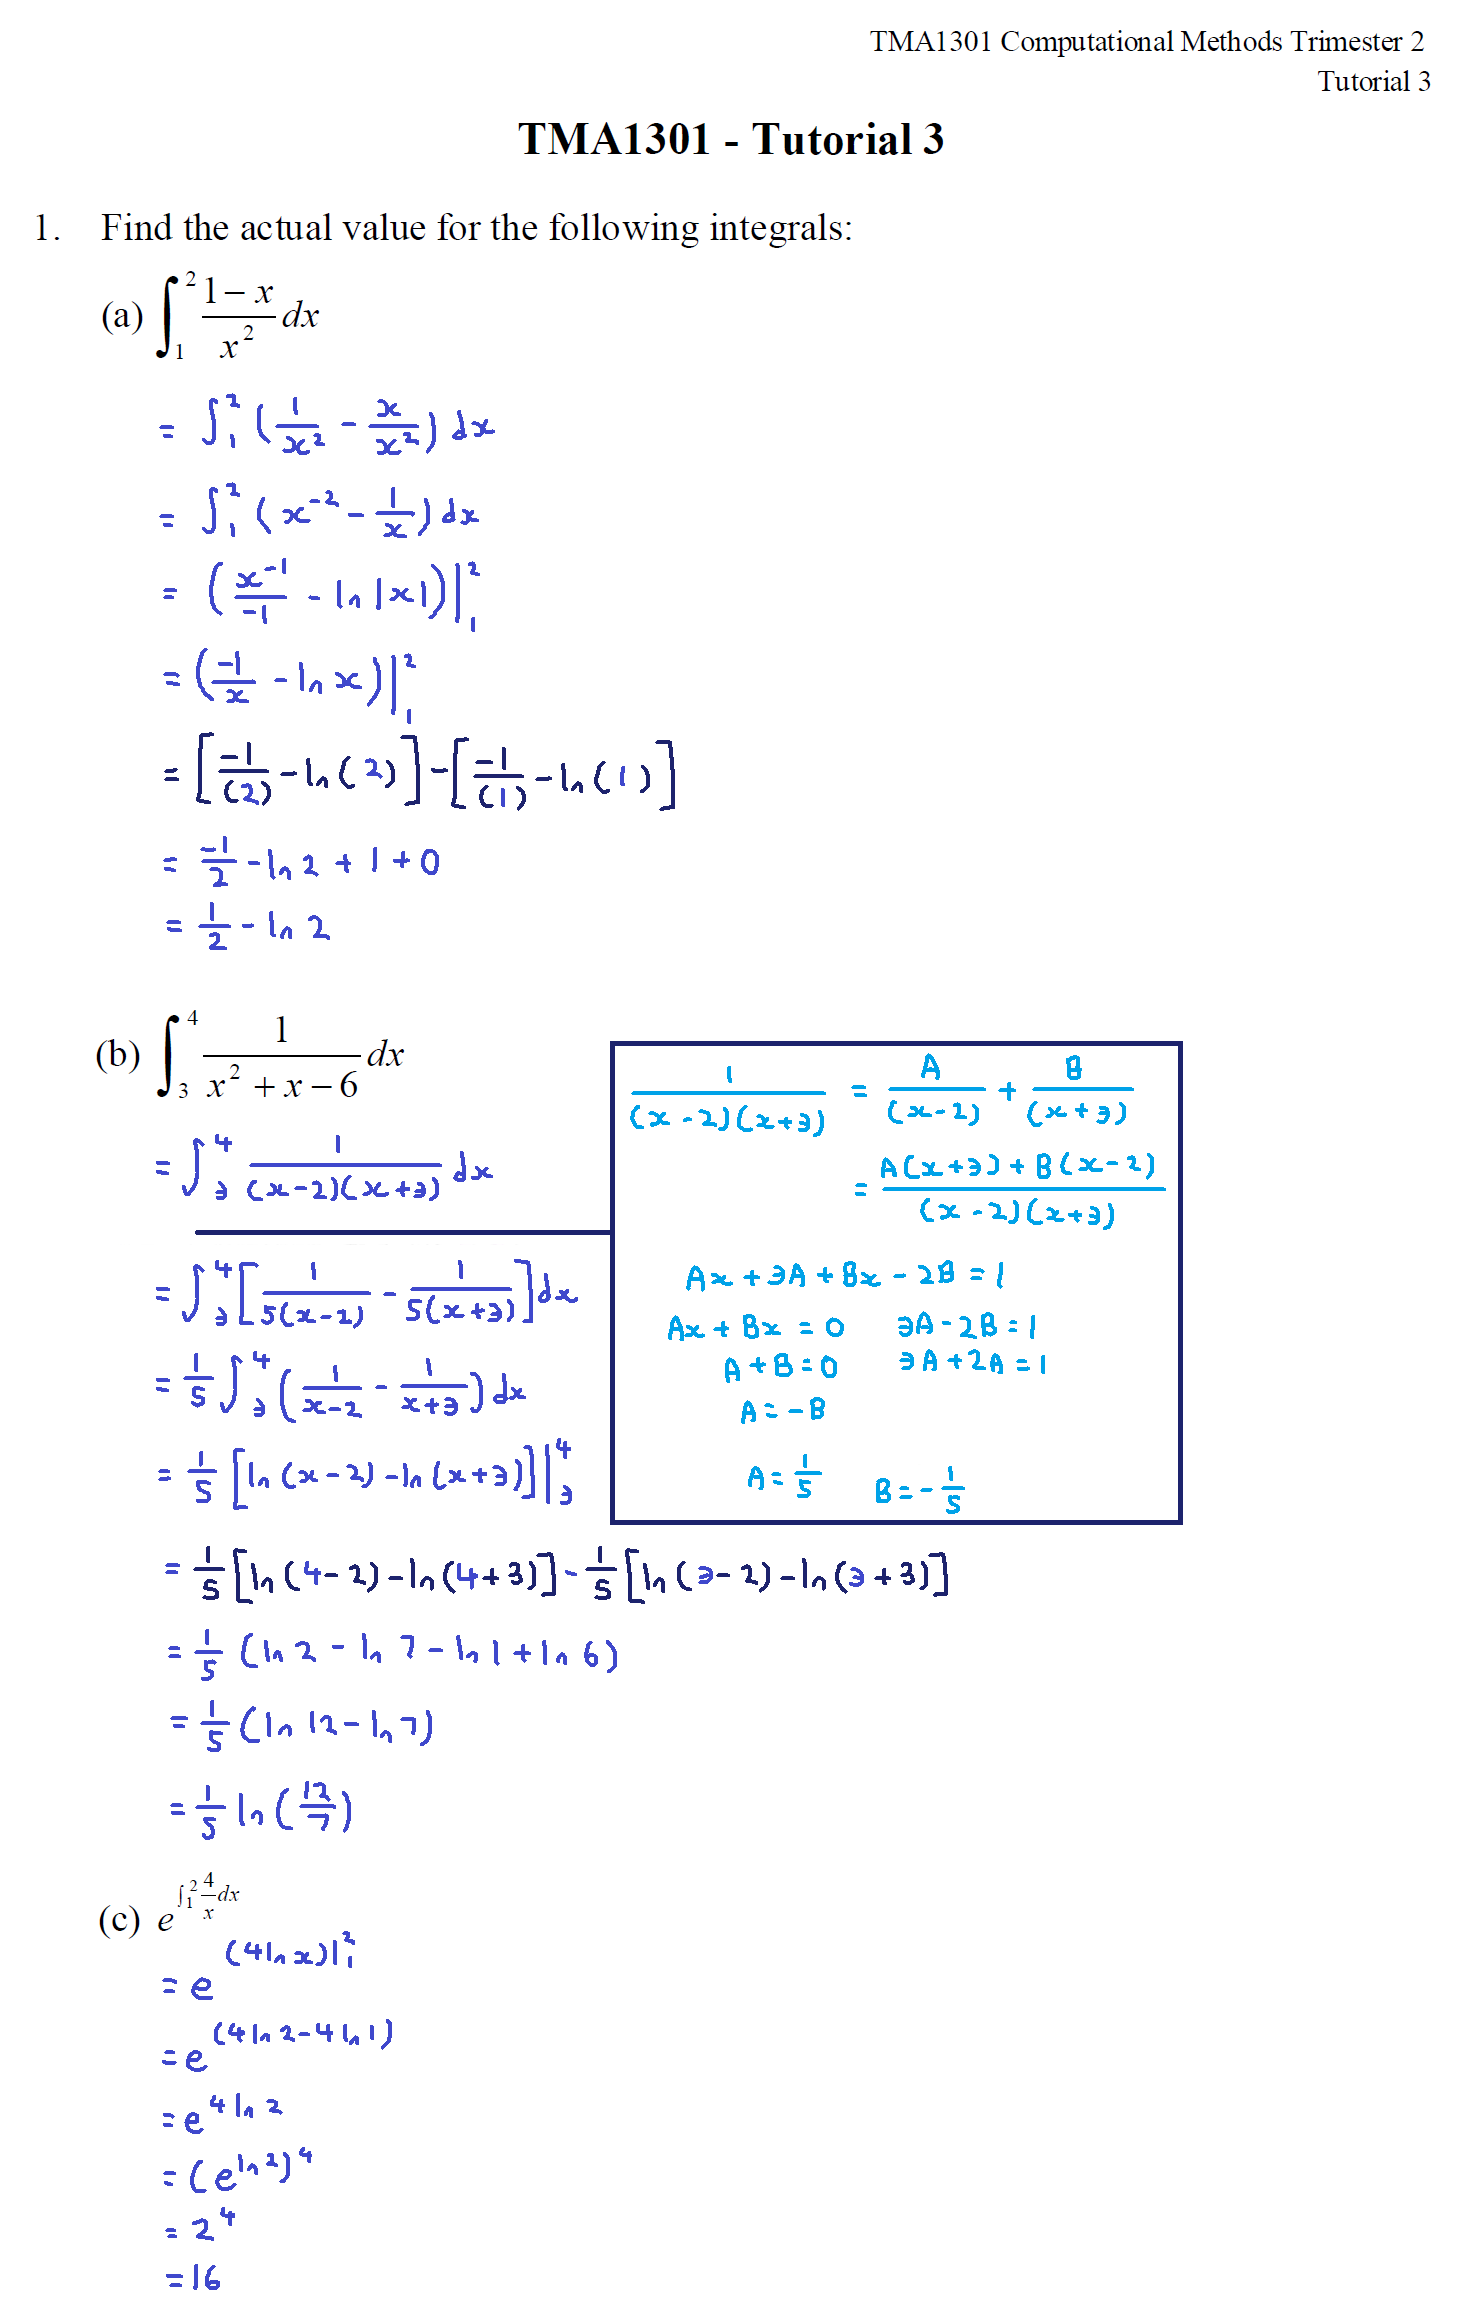 TMA1301 Computational Methods Trimester 2
Tutorial 3
TMA1301 - Tutorial 3
1. Find the actual value for the following integrals:
(a) ∫₁² (1 − x)/x² dx
= ∫₁² (1/x² - x/x²) dx
= ∫₁² (x⁻² - 1/x) dx
= (x⁻¹/-1 - ln |x|)|₁²
= (-1/x - ln x)|₁²
= [-1/(2) - ln(2)] - [-1/(1) - ln(1)]
= -1/2 - ln 2 + 1 + 0
= 1/2 - ln 2
(b) ∫₃⁴ 1/(x² + x − 6) dx
= ∫₃⁴ 1/((x-2)(x+3)) dx
= ∫₃⁴ [1/(5(x-2)) - 1/(5(x+3))] dx
= 1/5 ∫₃⁴ (1/(x-2) - 1/(x+3)) dx
= 1/5 [ln (x-2) - ln (x+3)]|₃⁴
1/((x-2)(x+3)) = A/(x-2) + B/(x+3)
= (A(x+3) + B(x-2))/((x-2)(x+3))
Ax + 3A + Bx - 2B = 1
Ax + Bx = 0 3A - 2B = 1
A + B = 0 3A + 2A = 1
A = -B
A = 1/5 B = -1/5
= 1/5 [ln (4-2) - ln(4+3)] - 1/5 [ln (3-2) - ln(3+3)]
= 1/5 (ln 2 - ln 7 - ln 1 + ln 6)
= 1/5 (ln 12 - ln 7)
= 1/5 ln (12/7)
(c) e^(∫₁² 4/x dx)
= e^((4 ln x)|₁²)
= e^((4 ln 2 - 4 ln 1))
= e^(4 ln 2)
= (e^(ln 2))⁴
= 2⁴
= 16